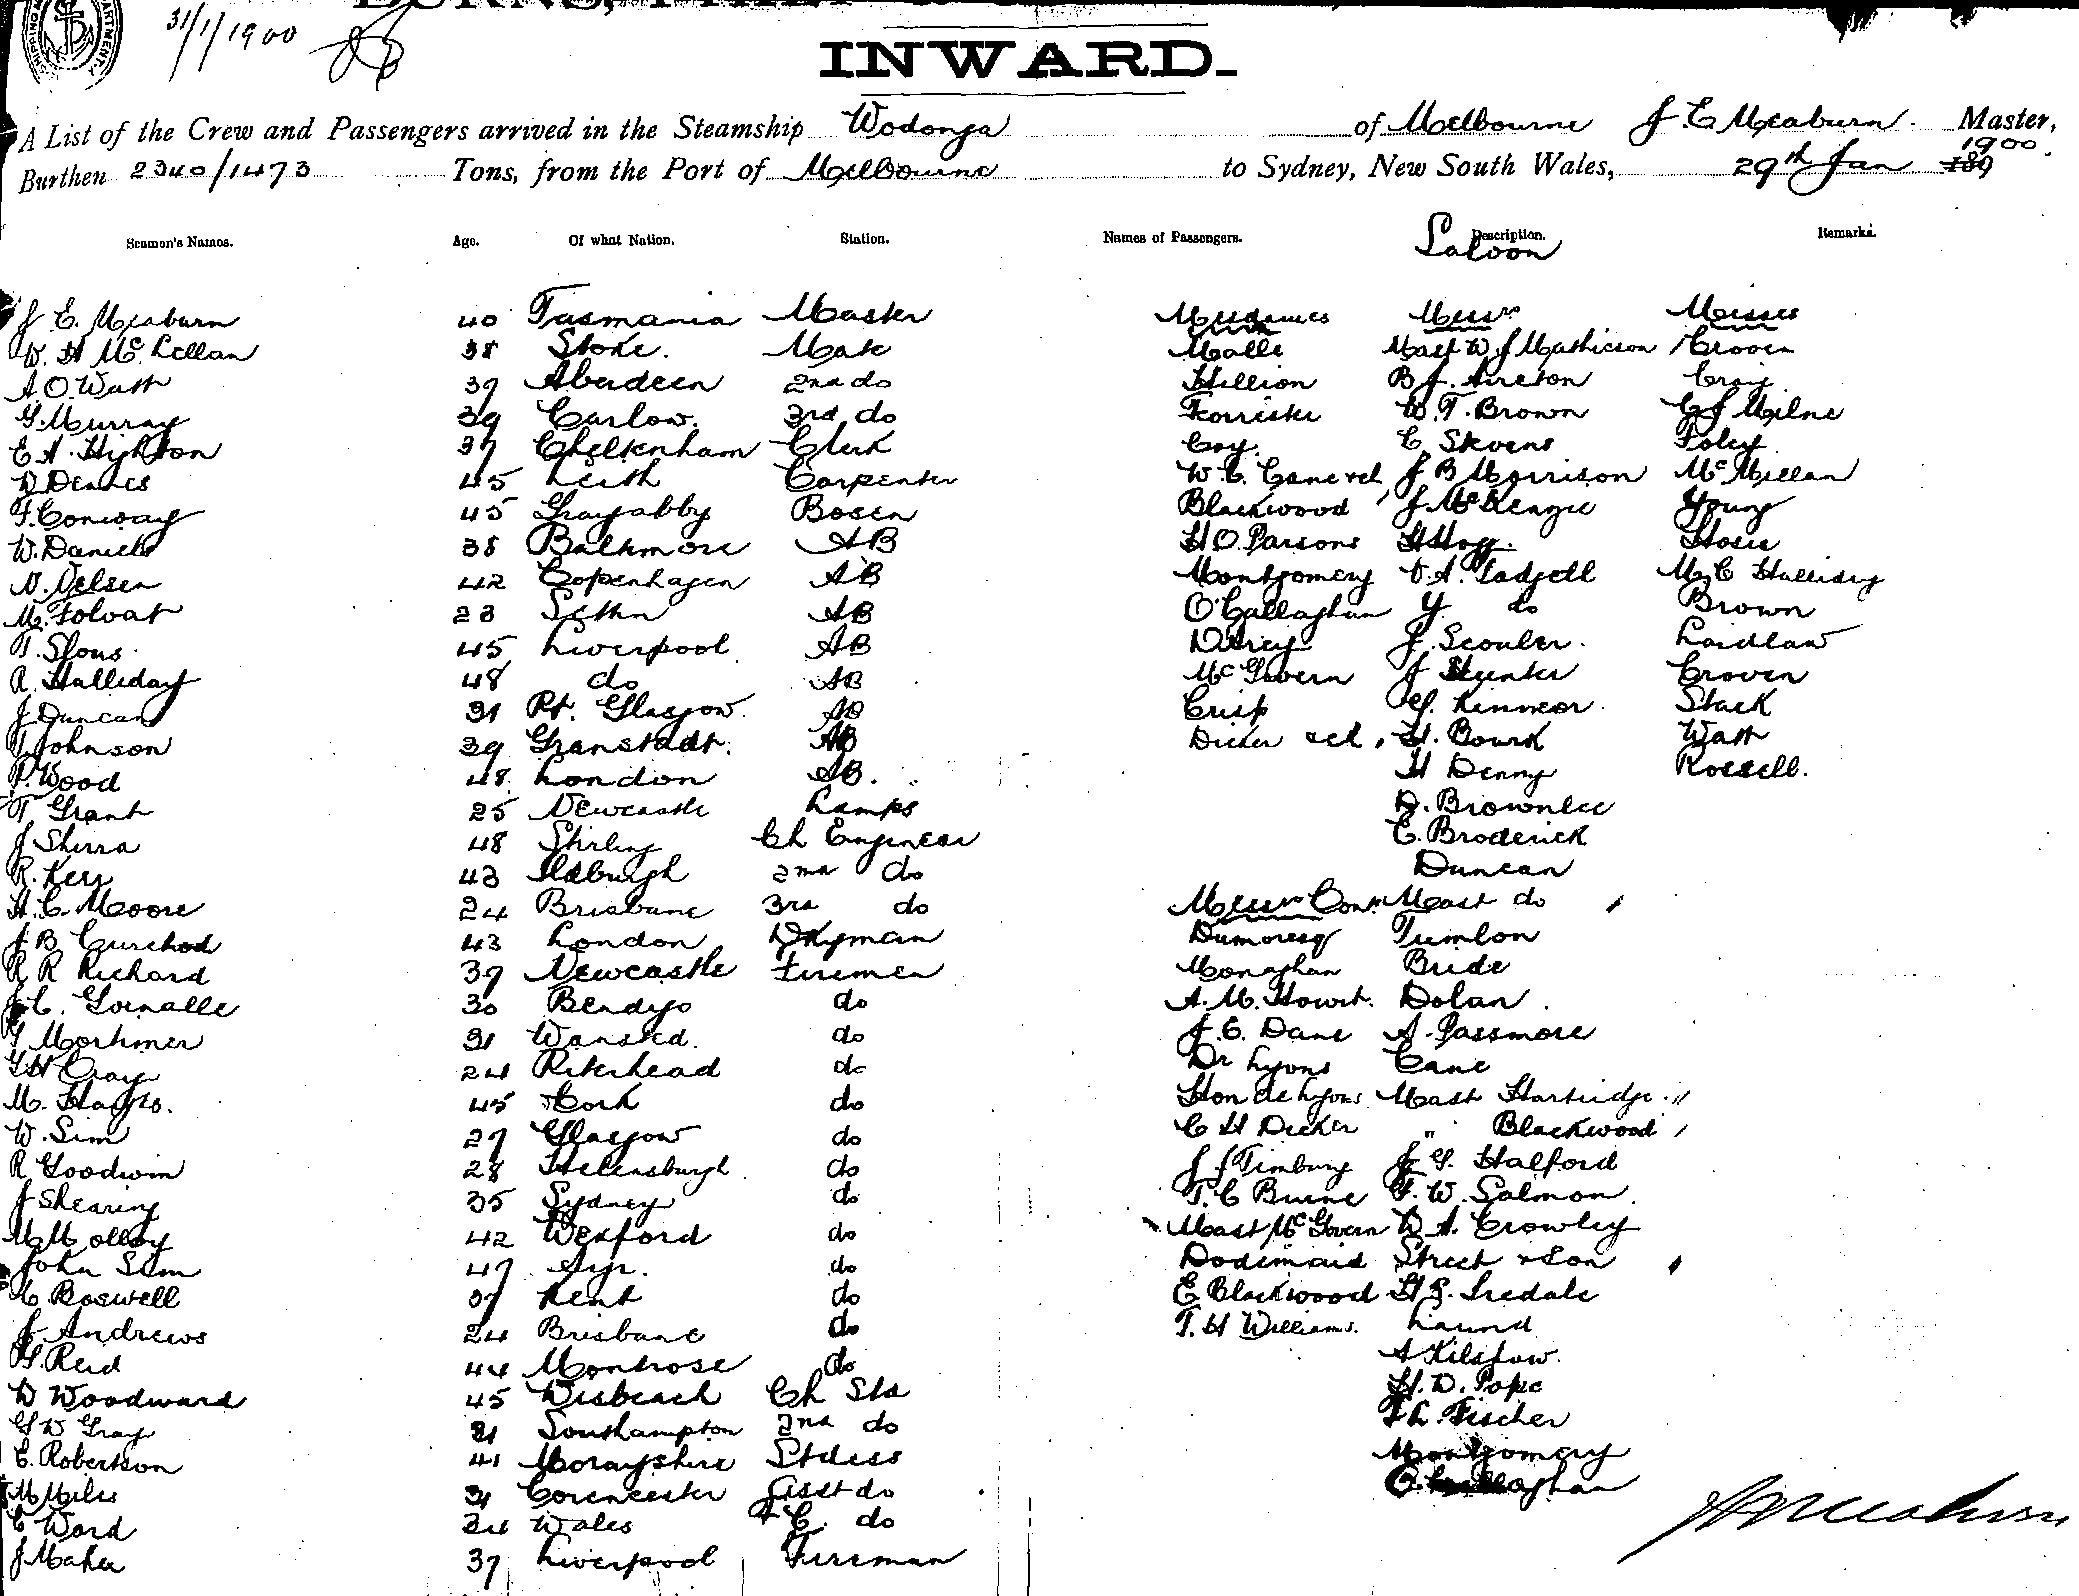 31/1/1900
INWARD.
A List of the Crew and Passengers arrived in the Steamship Wodonga of Melbourne J. E. Meaburn. Master,
Burthen 2340/1473 Tons, from the Port of Melbourne to Sydney, New South Wales, 29th Jan 1900 189
Seamen's Names. Age. Of what Nation. Station. Names of Passengers. Description. Remarks.
Saloon
J E. Meaburn 40 Tasmania Master Mesdames Messrs Misses
W. H McLellan 38 Stoke. Mate Malle Mast W J Mathieson Croven
A O. Watt 37 Aberdeen 2nd do Hillion B J. Aireton Craig
G. Murray 39 Carlow. 3rd do Forrister W. T. Brown C J Milne
E A. Highton 37 Cheltenham Clerk Coy. C Stevens Foley
D Dennes 45 Leith Carpenter W. C. J B Morrison McMillan
F. Conway 45 Bosen Blackwood J. McKenzie Young
W. Daniels 38 Baltimore AB H O. Parsons H Hogg. Hosie
N. Nelsen 42 Copenhagen AB Montgomery A. Tadgell M C Halliday
M. Folvat 23 AB O'Callaghan Y. do Brown
T. 45 Liverpool AB J. Scouler. Laidlaw
R. Halliday 48 do AB McGovern J Hunter Croven
J Duncan 31 Pt. Glasgow. AB Crisp G. Kinnear. Stack
T Johnson 39 Granstadt. AB Dicker & ch, H. Bourk Watt
F. Wood 48 London AB. H Denny Rossell.
T Grant 25 Newcastle Lamps D. Brownlee
J Sherra 48 Stirling Ch Engineer C. Broderick
R. Kerr 43 2nd do Duncan
H. C. Moore 24 Brisbane 3rd do Messrs Cont Mast do
J B Curchod 43 London Dkyman Dumoresq Tumlon
R R Richard 37 Newcastle Firemen Monaghan Bride
J C. Gornalle 30 Bendigo do A. M. Howit. Dolan.
G Mortimer 31 Wansted. do J. C. Dane A. Passmore
G H Cray 24 Birkerhead do Dr Lyons Cane
M. Hayes. 45 Cork do Hon de Lyons Mast Hartridge
W. Sim 27 Glasgow do C H Dicker " Blackwood
R Goodwin 28 Helensburgh do J J Timbury J G. Halford
J Shearing 35 Sydney do T. C Burne F. W. Salmon.
M Molloy 42 Wexford do Mast McGovern W. A. Crowley
John Sim 47 Ayr. do Dodemaid Street & Son
C. Boswell 37 Kent do E Blackwood H S. Iredale
J. Andrews 24 Brisbane do T. H Williams. Laund
G. Reid 44 Montrose do A Kilsfow.
W Woodward 45 Wisbeach Ch Std H. D. Pope
G W Gray 31 Southampton 2nd do F L. Fischer
E. Robertson 41 Morayshire Stdess Montgomery
M Miles 31 Corencester Asst do O. Callaghan
C Ward 24 Wales F. C. do
J Maher 37 Liverpool Fireman